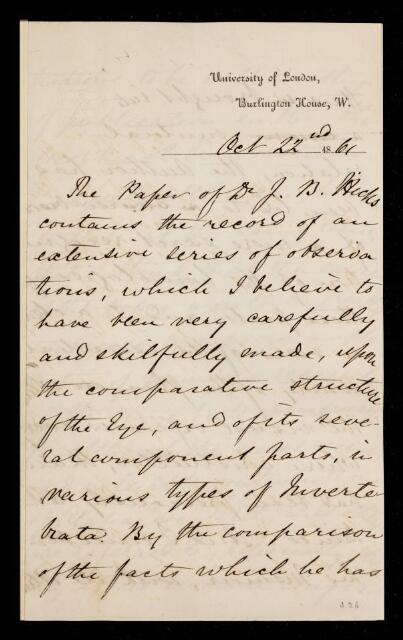 University of London,
Burlington House, W.
Oct 22nd 1861
The Paper of Dr J. B. Hicks
contains the record of an
extensive series of observa
tions, which I believe to
have been very carefully
and skilfully made, upon
the comparative structure
of the Eye, and of its seve-
ral component parts, in
various types of Inverte
brata. By the comparison
of the facts which he has
326